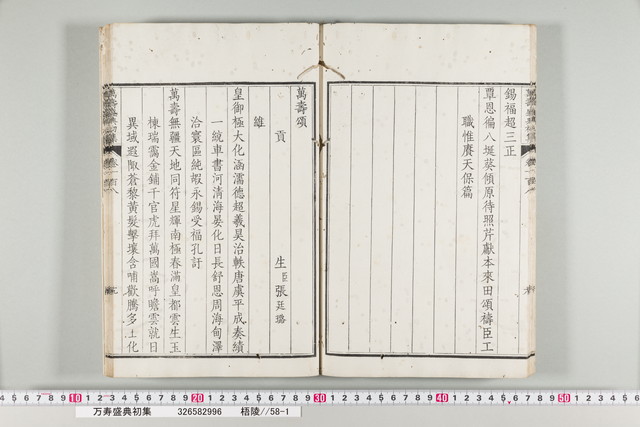 錫福超三正
覃恩徧八埏葵傾原待照芹獻本來田頌禱臣工
職惟賡天保篇
萬壽頌
貢生臣張廷璐
維
皇御極大化涵濡德超羲昊治軼唐虞平成奏績
一統車書河清海晏化日長舒恩周海甸澤
洽寰區純嘏永錫受福孔訏
萬壽無疆天地同符星輝南極春滿皇都雲生玉
棟瑞靄金鋪千官虎拜萬國嵩呼瞻雲就日
異域遐陬蒼黎黃髮擊壤含哺歡騰多士化
万寿盛典初集 326582996 梧陵//58-1